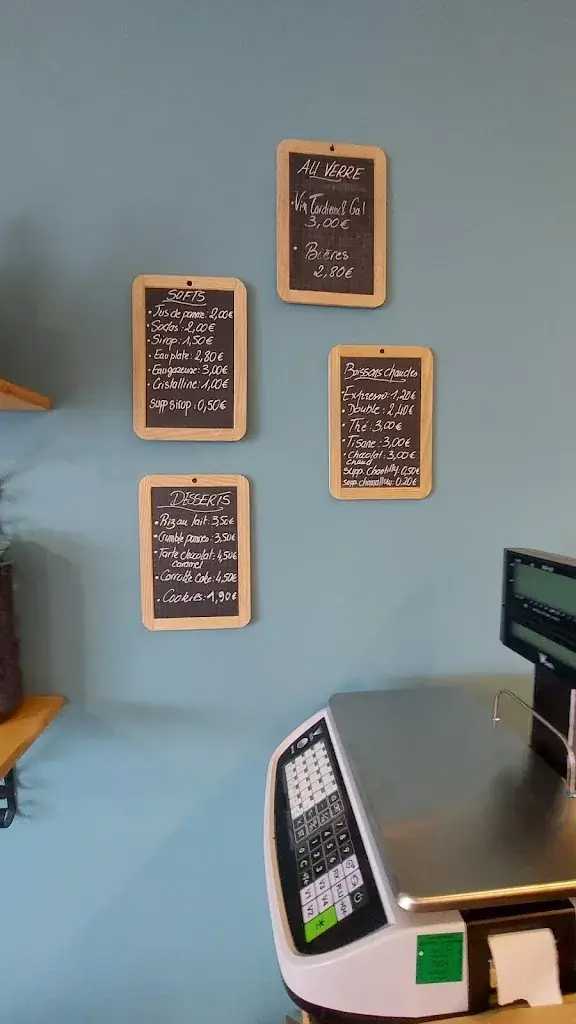 AU VERRE
• Vin Tardieu & Gal
3,00€
• Bières
2,80€
SOFTS
• Jus de pomme: 2,00€
• Sodas: 2,00€
• Sirop: 1,50€
• Eau plate: 2,80€
Eau gazeuse: 3,00€
• Cristalline: 1,00€
Supp sirop: 0,50€
Boissons chaudes
• Expresso: 1,20€
• Double: 2,40€
• Thé: 3,00€
• Tisane: 3,00€
• chocolat: 3,00€
chaud
supp. Chantilly: 0,50€
supp. chamallow: 0,20€
DESSERTS
• Riz au lait: 3,50€
• Crumble pommes: 3,50€
• Tarte chocolat: 4,50€
caramel
• Carrotte Cake: 4,50€
• Cookies: 1,90€
7 8 9
4 5 6
1 2 3
0 C
V1 V2 V3 V4
PLU